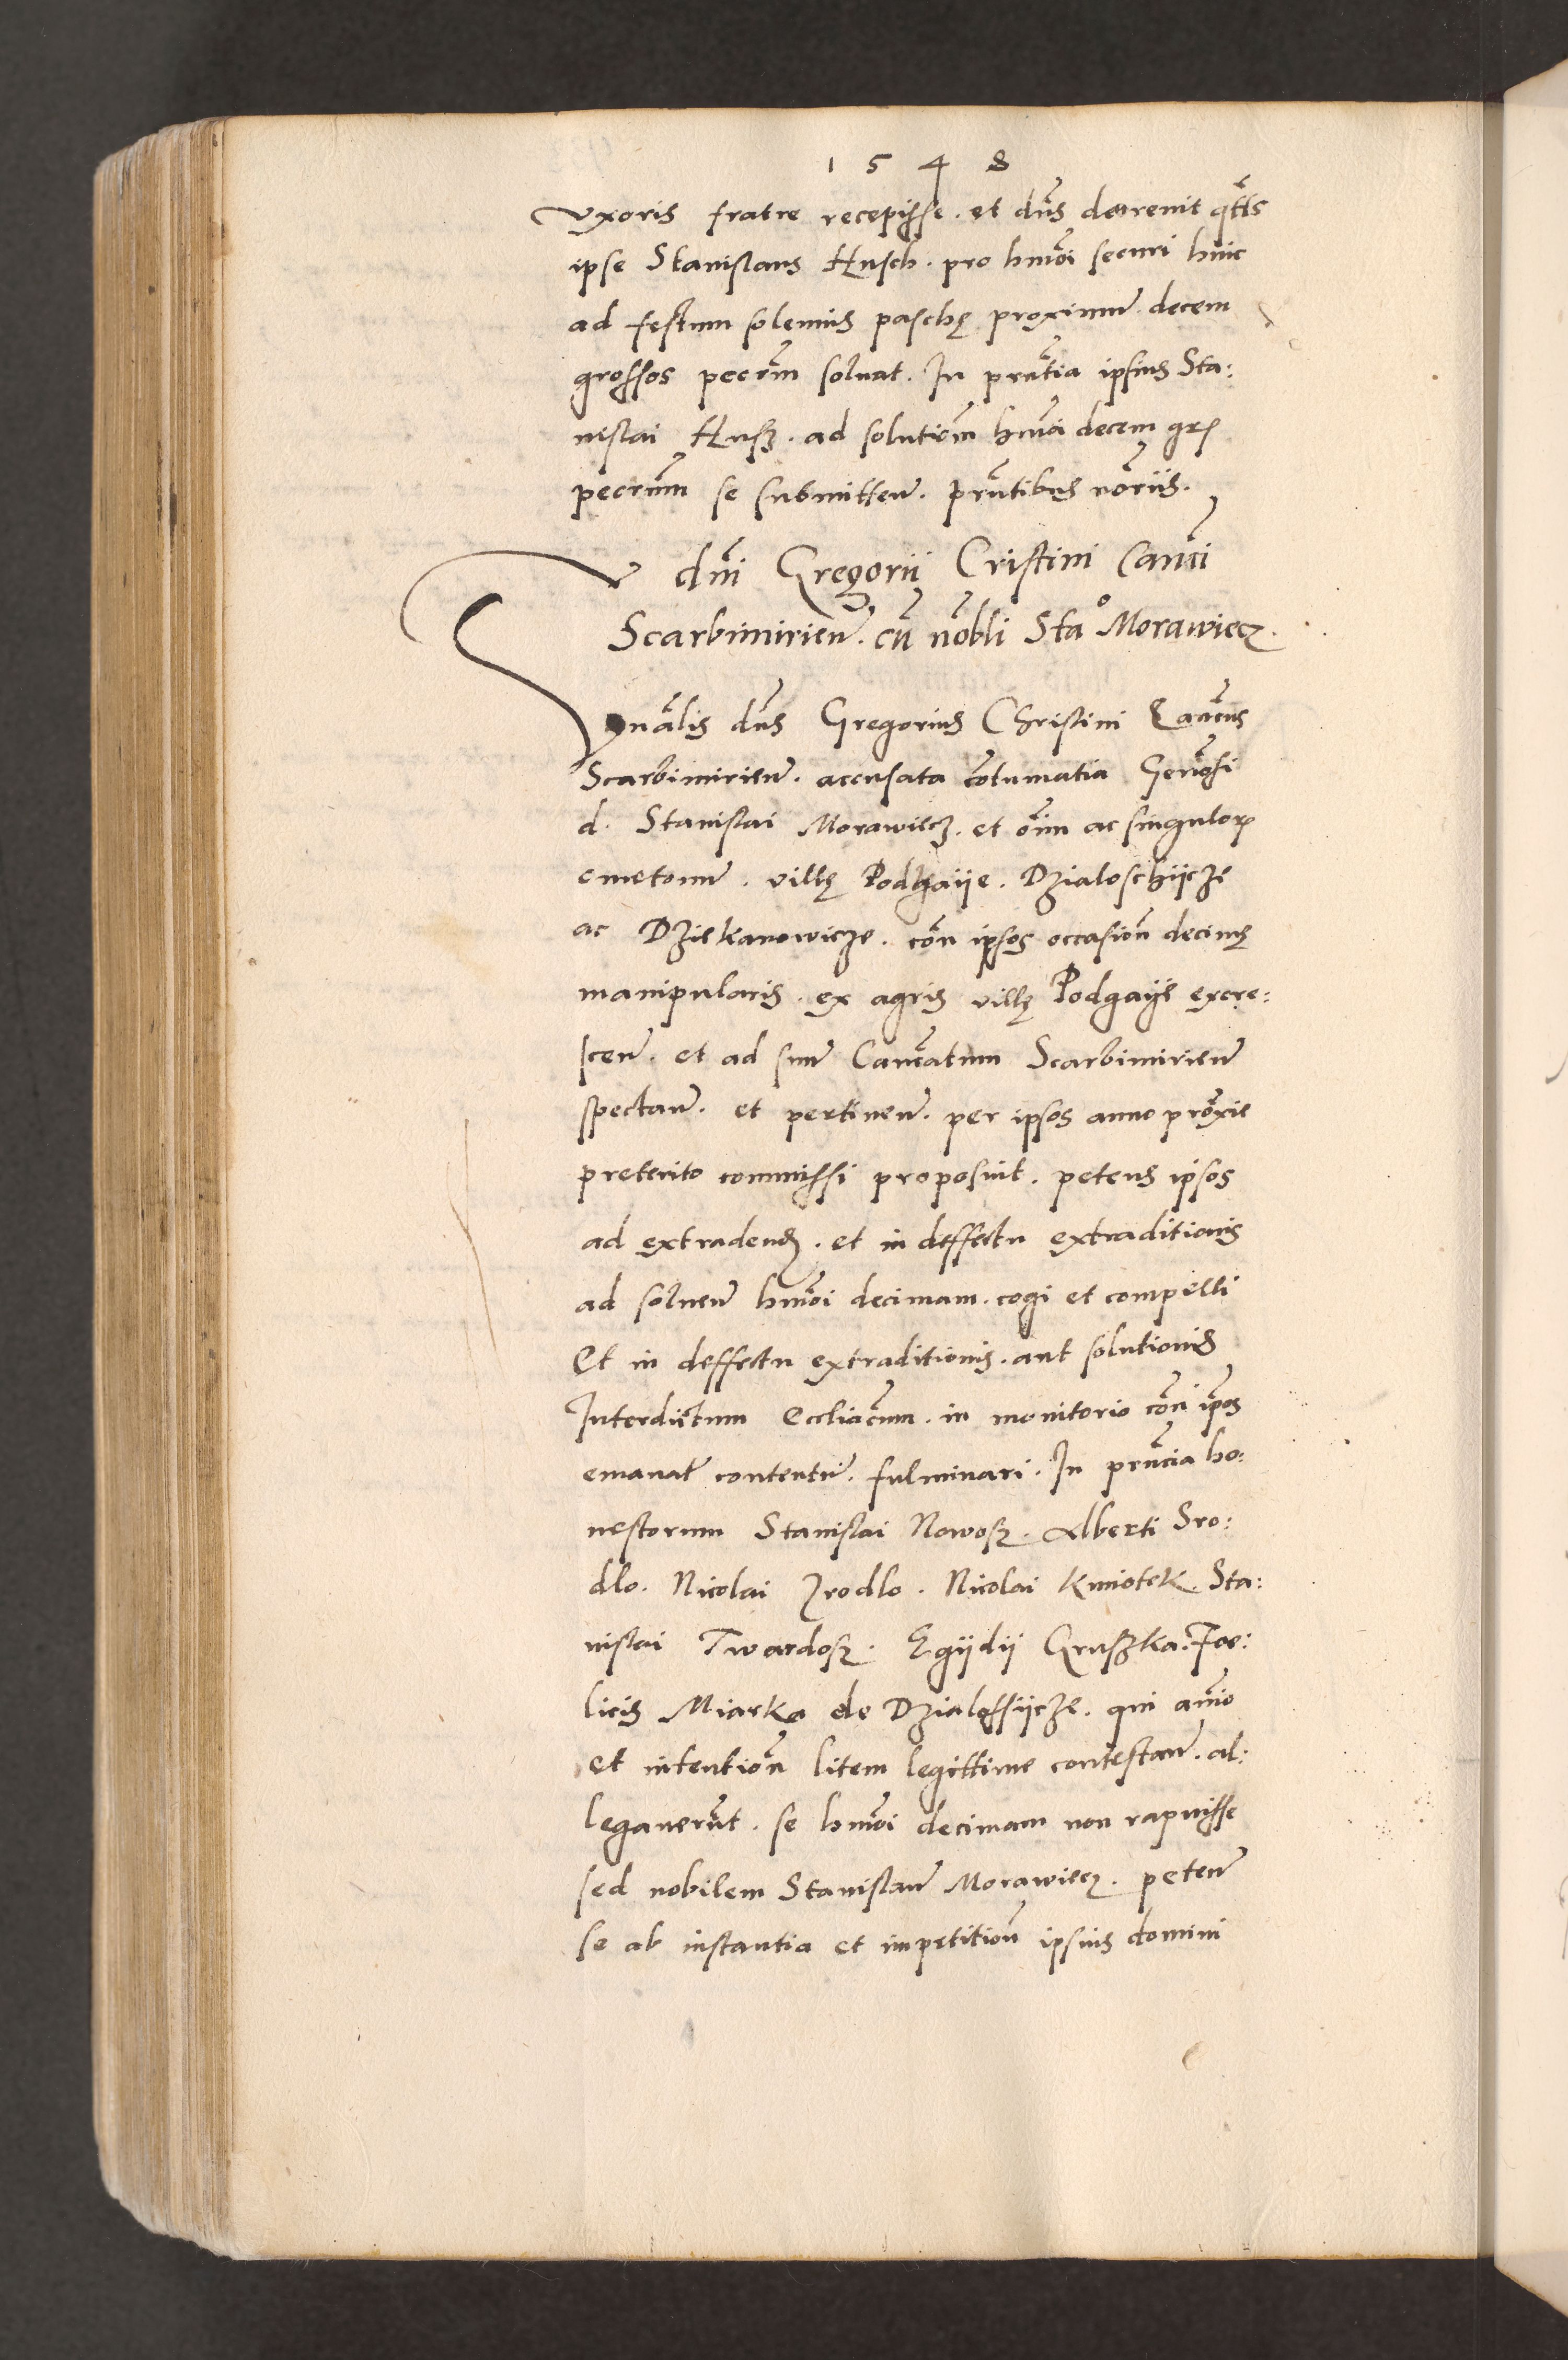 1548
vxoris fratre recepisse. et dns decrevit qtts
ipse Stanislaus Husch. pro hmoi securi hinc
ad festum solemnis paschę proximum. decem
grossos pecrm solvat. In prntia ipsius Sta:
nislai Husz. ad solutiom hmoi decem grs
pecrum se submitten. prntibus noriis.
dni Gregorii Cristini Canci
Scarbimirien. cu nobli Stao Morawiecz.
Vnalis dns Gregorius Christini Cancus
Scarbimirien. accusata cotumatia Generosi
d. Stanislai Morawiecz. et oim ac singulor
cmetonum. villę Podgaiie. Dzialoschijcze
ac Dziekanowicze. con ipsos occasion decimę
manipularis. ex agris villę Podgaije excre:
scen. et ad suum Cancatum Scarbimirien
spectan. et pertinen. per ipsos anno proxie
preterito commissi proposuit. petens ipsos
ad extradend. et in deffectu extraditionis
ad solven hmoi decimam. cogi et compelli
Et in deffectu extraditionis. aut solutionis
Interdictum Eccliacum. in monitorio con ipos
emanat contentum. fulminari. In prncia ho:
nestorum Stanislai Nowosz. Alberti Sro:
dlo. Nicolai Zrodlo. Nicolai Kmiotek. Sta:
nislai Twardosz. Egijdij Gruszka. Foe:
licis Miarka de Dzialossijcze. qui animo
et intention litem legittime contestan. al:
legaverut. se hmoi decimam non rapuisse
sed nobilem Stanislaum Morawiecz. peten
se ab instantia et impetition ipsius domini